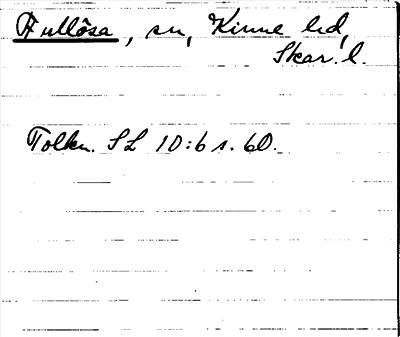 Fullösa, sn, Kinne hd,
Skar. l.
Tolkn. SL 10:6 s. 60.